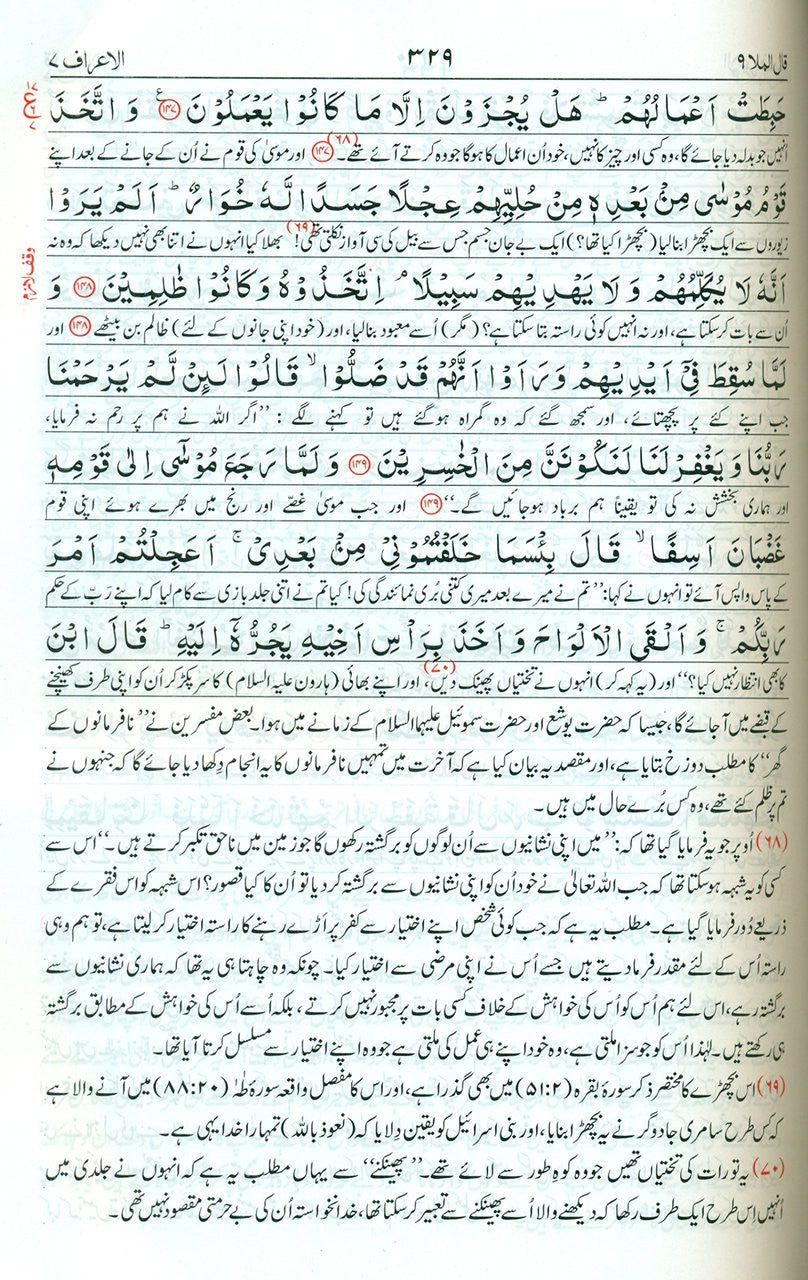 قال الملا ۹
۳۲۹
الاعراف ۷
حَبِطَتْ اَعْمَالُهُمْ ؕ هَلْ يُجْزَوْنَ اِلَّا مَا كَانُوْا يَعْمَلُوْنَ ﴿۱۴۷﴾ ع وَ اتَّخَذَ
انہیں جو بدلہ دیا جائے گا، وہ کسی اور چیز کا نہیں، خود اُن اعمال کا ہوگا جو وہ کرتے آئے تھے۔(۶۸) ﴿۱۴۷﴾ اور موسیٰ کی قوم نے اُن کے جانے کے بعد اپنے
قَوْمُ مُوْسٰى مِنْۢ بَعْدِهٖ مِنْ حُلِيِّهِمْ عِجْلًا جَسَدًا لَّهٗ خُوَارٌ ؕ اَلَمْ يَرَوْا
زیوروں سے ایک بچھڑا بنالیا (بچھڑا کیا تھا؟) ایک بے جان جسم جس سے بیل کی سی آواز نکلتی تھی!(۶۹) بھلا کیا انہوں نے اتنا بھی نہیں دیکھا کہ وہ نہ
وقف لازم
اَنَّهٗ لَا يُكَلِّمُهُمْ وَ لَا يَهْدِيْهِمْ سَبِيْلًا ۘ اِتَّخَذُوْهُ وَ كَانُوْا ظٰلِمِيْنَ ﴿۱۴۸﴾ وَ
اُن سے بات کرسکتا ہے، اور نہ انہیں کوئی راستہ بتا سکتا ہے؟ (مگر) اُسے معبود بنالیا، اور (خود اپنی جانوں کے لئے) ظالم بن بیٹھے ﴿۱۴۸﴾ اور
لَمَّا سُقِطَ فِيْۤ اَيْدِيْهِمْ وَ رَاَوْا اَنَّهُمْ قَدْ ضَلُّوْا ۙ قَالُوْا لَىِٕنْ لَّمْ يَرْحَمْنَا
جب اپنے کئے پر پچھتائے، اور سمجھ گئے کہ وہ گمراہ ہوگئے ہیں تو کہنے لگے: ’’اگر اللہ نے ہم پر رحم نہ فرمایا،
رَبُّنَا وَ يَغْفِرْ لَنَا لَنَكُوْنَنَّ مِنَ الْخٰسِرِيْنَ ﴿۱۴۹﴾ وَ لَمَّا رَجَعَ مُوْسٰۤى اِلٰى قَوْمِهٖ
اور ہماری بخشش نہ کی تو یقیناً ہم برباد ہوجائیں گے۔‘‘ ﴿۱۴۹﴾ اور جب موسیٰ غصے اور رنج میں بھرے ہوئے اپنی قوم
غَضْبَانَ اَسِفًا ۙ قَالَ بِئْسَمَا خَلَفْتُمُوْنِيْ مِنْۢ بَعْدِيْ ۚ اَعَجِلْتُمْ اَمْرَ
کے پاس واپس آئے تو انہوں نے کہا: ’’تم نے میرے بعد میری کتنی بُری نمائندگی کی! کیا تم نے اتنی جلد بازی سے کام لیا کہ اپنے رَبّ کے حکم
رَبِّكُمْ ۚ وَ اَلْقَى الْاَلْوَاحَ وَ اَخَذَ بِرَاْسِ اَخِيْهِ يَجُرُّهٗۤ اِلَيْهِ ؕ قَالَ ابْنَ
کا بھی انتظار نہیں کیا؟‘‘ اور (یہ کہہ کر) انہوں نے تختیاں پھینک دیں،(۷۰) اور اپنے بھائی (ہارون علیہ السلام) کا سر پکڑ کر اُن کو اپنی طرف کھینچنے
کے قبضے میں آجائے گا، جیسا کہ حضرت یوشع اور حضرت سموئیل علیہما السلام کے زمانے میں ہوا۔ بعض مفسرین نے ’’نافرمانوں کے
گھر‘‘ کا مطلب دوزخ بتایا ہے، اور مقصد یہ بیان کیا ہے کہ آخرت میں تمہیں نافرمانوں کا یہ انجام دِکھا دیا جائے گا کہ جنہوں نے
تم پر ظلم کئے تھے، وہ کس بُرے حال میں ہیں۔
(۶۸) اُوپر جو یہ فرمایا گیا تھا کہ: ’’میں اپنی نشانیوں سے اُن لوگوں کو برگشتہ رکھوں گا جو زمین میں ناحق تکبر کرتے ہیں۔‘‘ اس سے
کسی کو یہ شبہہ ہوسکتا تھا کہ جب اللہ تعالیٰ نے خود اُن کو اپنی نشانیوں سے برگشتہ کردیا تو اُن کا کیا قصور؟ اس شبہہ کو اس فقرے کے
ذریعے دُور فرمایا گیا ہے۔ مطلب یہ ہے کہ جب کوئی شخص اپنے اختیار سے کفر پر اَڑے رہنے کا راستہ اختیار کرلیتا ہے، تو ہم وہی
راستہ اُس کے لئے مقدر فرما دیتے ہیں جسے اُس نے اپنی مرضی سے اختیار کیا۔ چونکہ وہ چاہتا ہی یہ تھا کہ ہماری نشانیوں سے
برگشتہ رہے، اس لئے ہم اُس کو اُس کی خواہش کے خلاف کسی بات پر مجبور نہیں کرتے، بلکہ اُسے اُس کی خواہش کے مطابق برگشتہ
ہی رکھتے ہیں۔ لہٰذا اُس کو جو سزا ملتی ہے، وہ خود اپنے ہی عمل کی ملتی ہے جو وہ اپنے اختیار سے مسلسل کرتا آیا تھا۔
(۶۹) اس بچھڑے کا مختصر ذکر سورۂ بقرہ (۲:۵۱) میں بھی گذرا ہے، اور اس کا مفصل واقعہ سورۂ طٰہٰ (۲۰:۸۸) میں آنے والا ہے
کہ کس طرح سامری جادوگر نے یہ بچھڑا بنایا، اور بنی اسرائیل کو یقین دِلایا کہ (نعوذ باللہ) تمہارا خدا یہی ہے۔
(۷۰) یہ تورات کی تختیاں تھیں جو وہ کوہِ طور سے لائے تھے۔ ’’پھینکنے‘‘ سے یہاں مطلب یہ ہے کہ انہوں نے جلدی میں
اُنہیں اِس طرح ایک طرف رکھا کہ دیکھنے والا اُسے پھینکنے سے تعبیر کرسکتا تھا، خدانخواستہ اُن کی بے حرمتی مقصود نہیں تھی۔